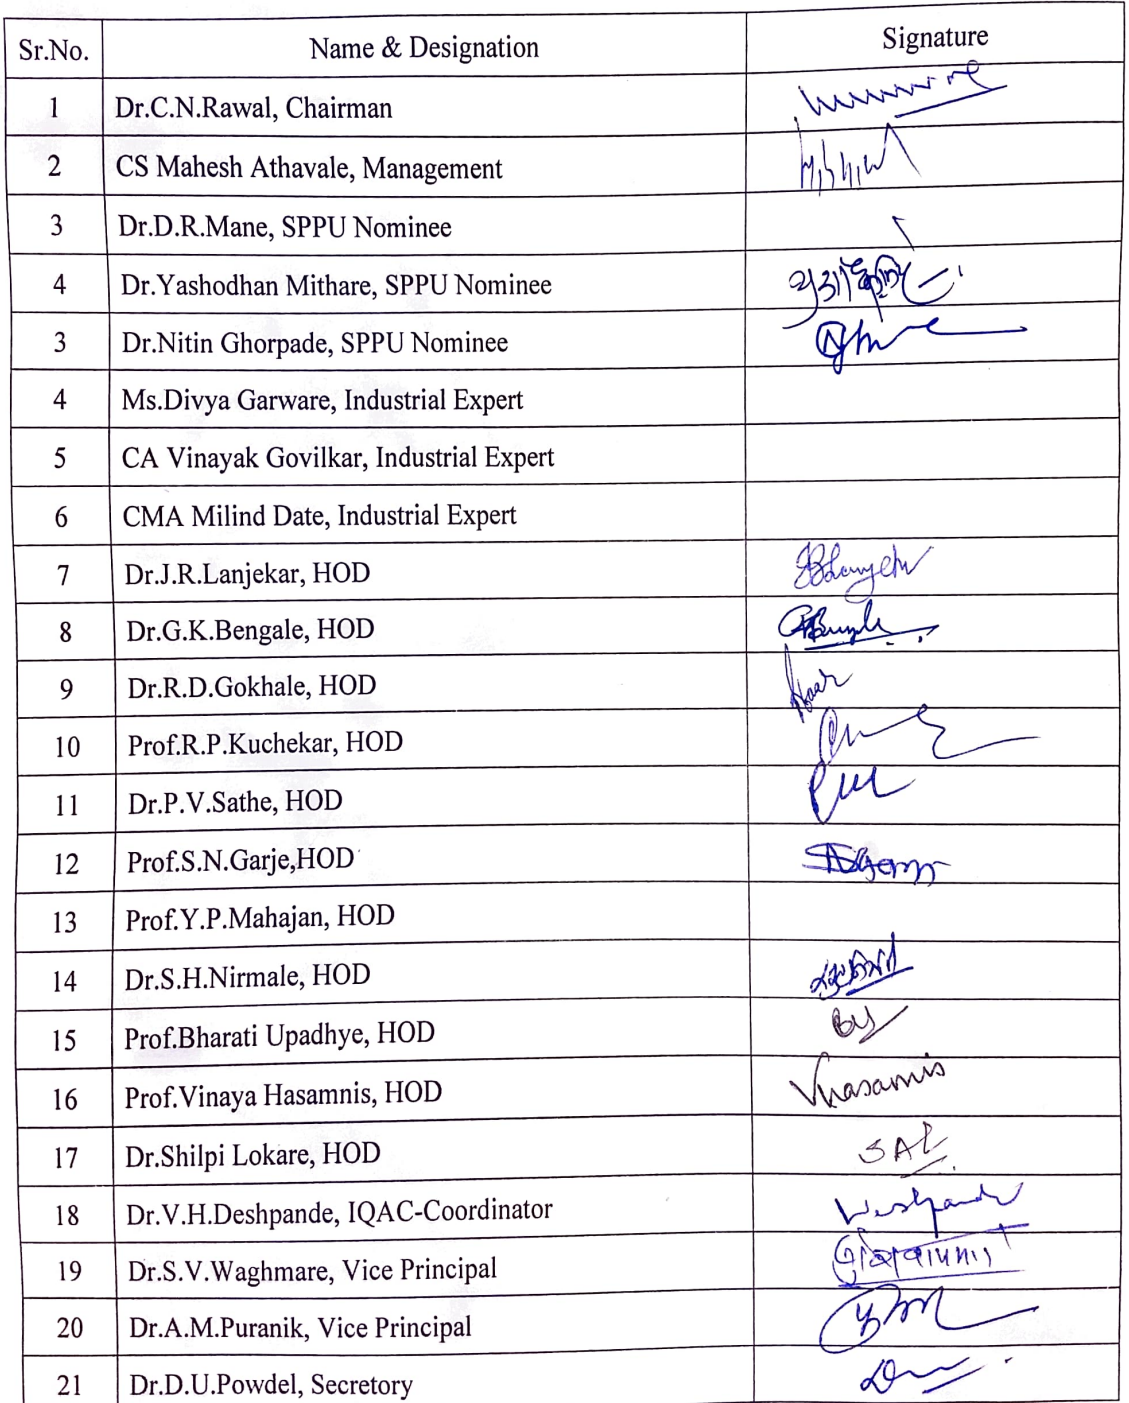 Sr.No. Name & Designation Signature
1 Dr.C.N.Rawal, Chairman
2 CS Mahesh Athavale, Management
3 Dr.D.R.Mane, SPPU Nominee
4 Dr.Yashodhan Mithare, SPPU Nominee
3 Dr.Nitin Ghorpade, SPPU Nominee
4 Ms.Divya Garware, Industrial Expert
5 CA Vinayak Govilkar, Industrial Expert
6 CMA Milind Date, Industrial Expert
7 Dr.J.R.Lanjekar, HOD
8 Dr.G.K.Bengale, HOD
9 Dr.R.D.Gokhale, HOD
10 Prof.R.P.Kuchekar, HOD
11 Dr.P.V.Sathe, HOD
12 Prof.S.N.Garje,HOD
13 Prof.Y.P.Mahajan, HOD
14 Dr.S.H.Nirmale, HOD
15 Prof.Bharati Upadhye, HOD BU
16 Prof.Vinaya Hasamnis, HOD Vhasamnis
17 Dr.Shilpi Lokare, HOD
18 Dr.V.H.Deshpande, IQAC-Coordinator
19 Dr.S.V.Waghmare, Vice Principal
20 Dr.A.M.Puranik, Vice Principal
21 Dr.D.U.Powdel, Secretory